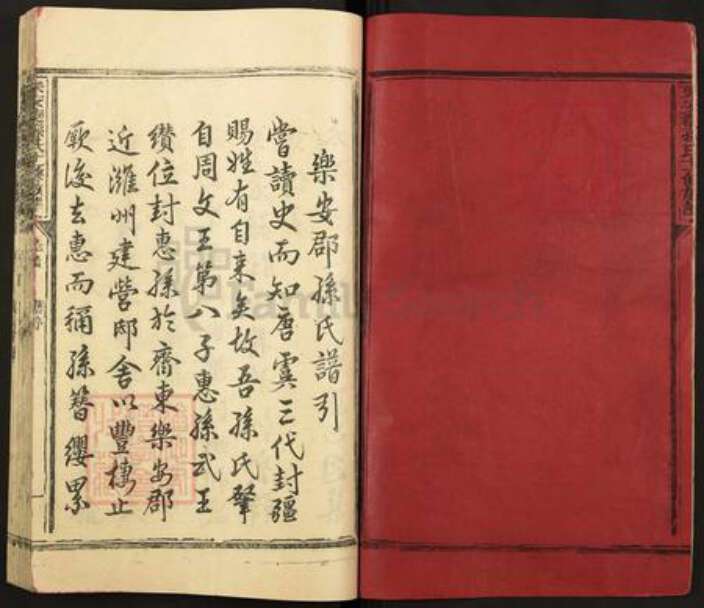 樂安郡孫氏譜引
嘗讀史而知唐虞三代封疆
賜姓有自来矣故吾孫氏肇
自周文王第八子惠孫武王
纘位封惠孫於齊東樂安郡
近濰州建營邸舍以豐棲止
厥後去惠而稱孫簪纓累